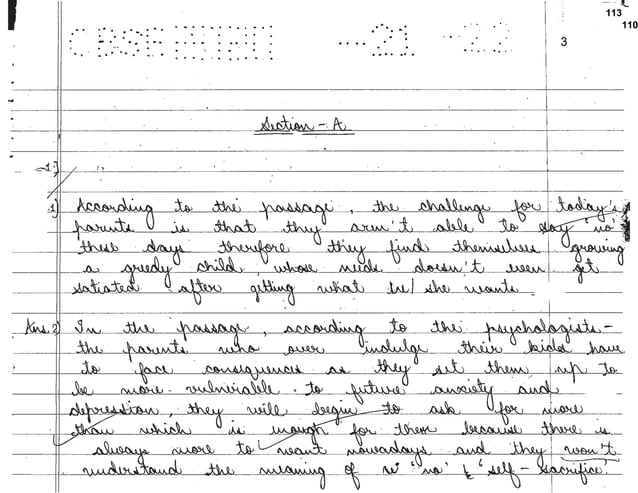 113
110
CBSE
21
22
3
Section - A
1)
1) According to the passage, the challenge for today's
parents is that they aren't able to say 'no'
these days therefore they find themselves growing
a greedy child whose needs doesn't even get
satiated after getting what he/she wants
Ans. 2) In the passage, according to the psychologists -
the parents who over indulge their kids have
to face consequences as they set them up to
be more vulnerable to future anxiety and
depression, they will begin to ask for more
than which is enough for them because there is
always more to want nowadays and they won't
understand the meaning of 'no' & 'self-sacrifice'